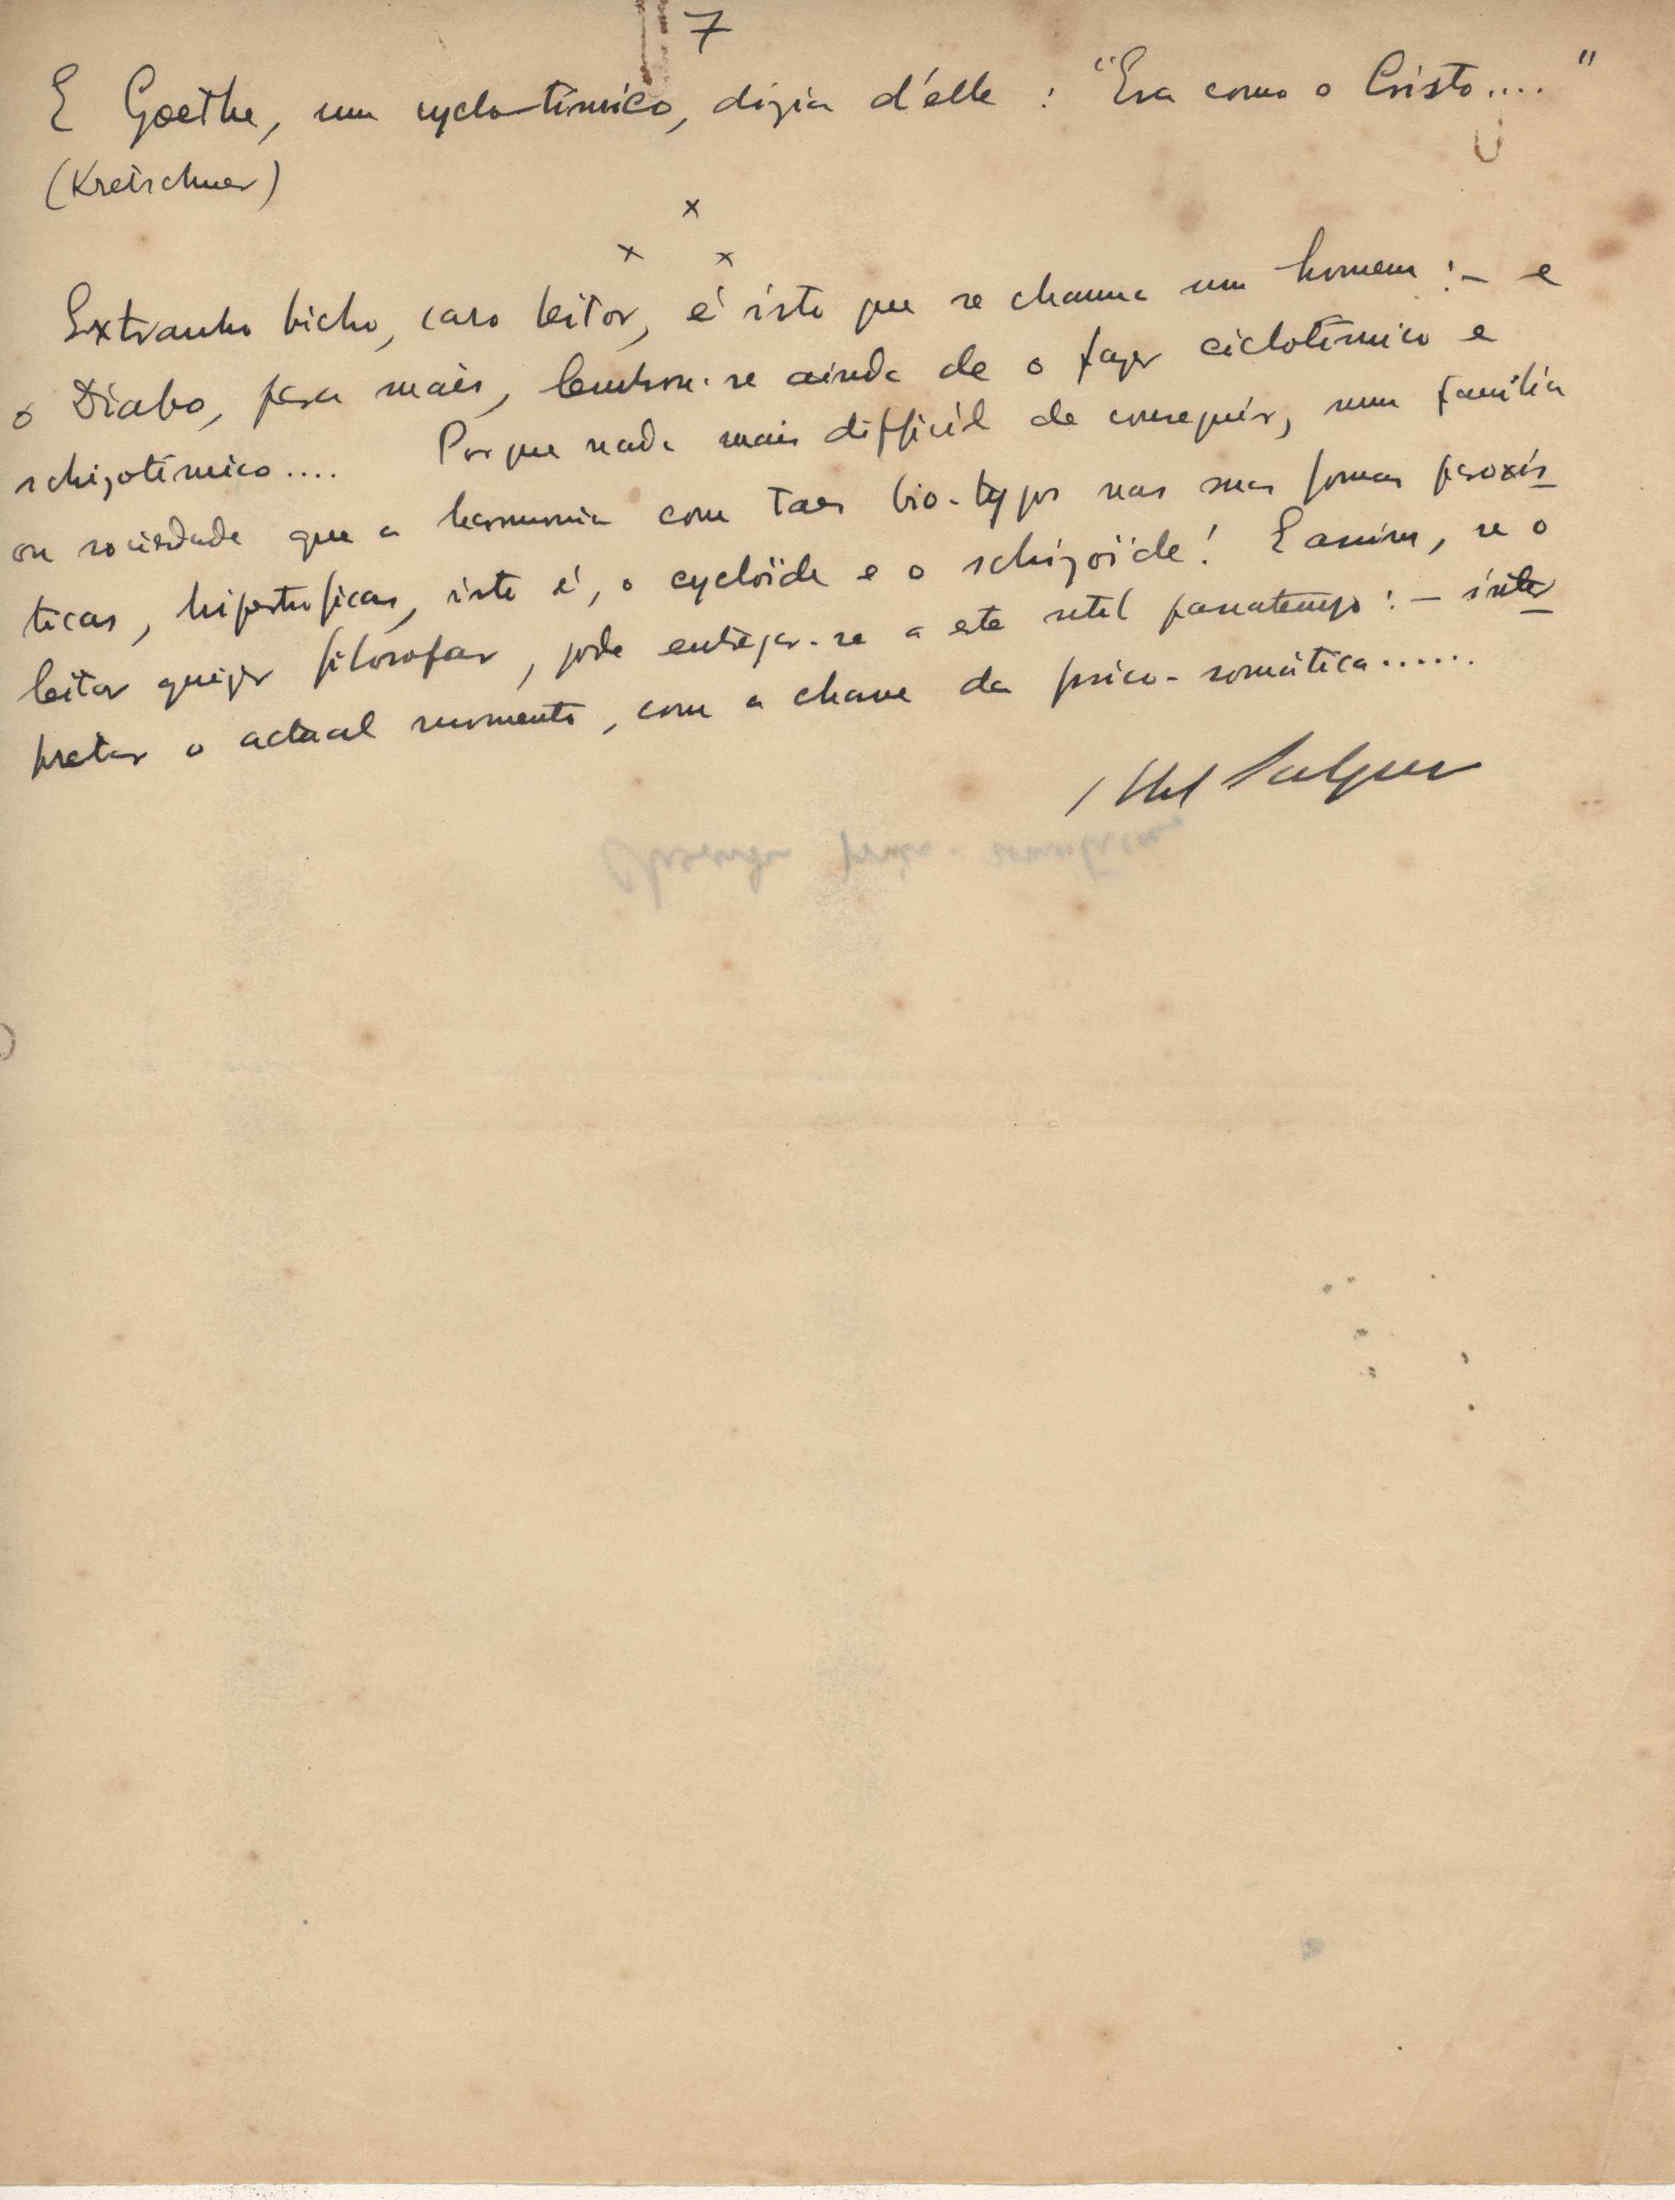 7
E Goethe, um cyclo-tímico, dizia d'élle : "Era como o Cristo...."
(Kretschmer)
x
x x
Extranho bicho, caro leitor, é isto que se chama um homem : - e
o Diabo, para mais, lembrou-se ainda de o fazer ciclotímico e
schizotímico.... Porque nada mais difficil de conseguir, numa familia
ou sociedade que a harmonia com taes bio-typos nas suas formas paroxis
ticas, hipertroficas, isto é, o cycloïde e o schizoïde! E assim, se o
leitor quizer filosofar, pode entregar-se a este util passatempo : - inter
pretar o actual momento, com a chave da psico-somática......